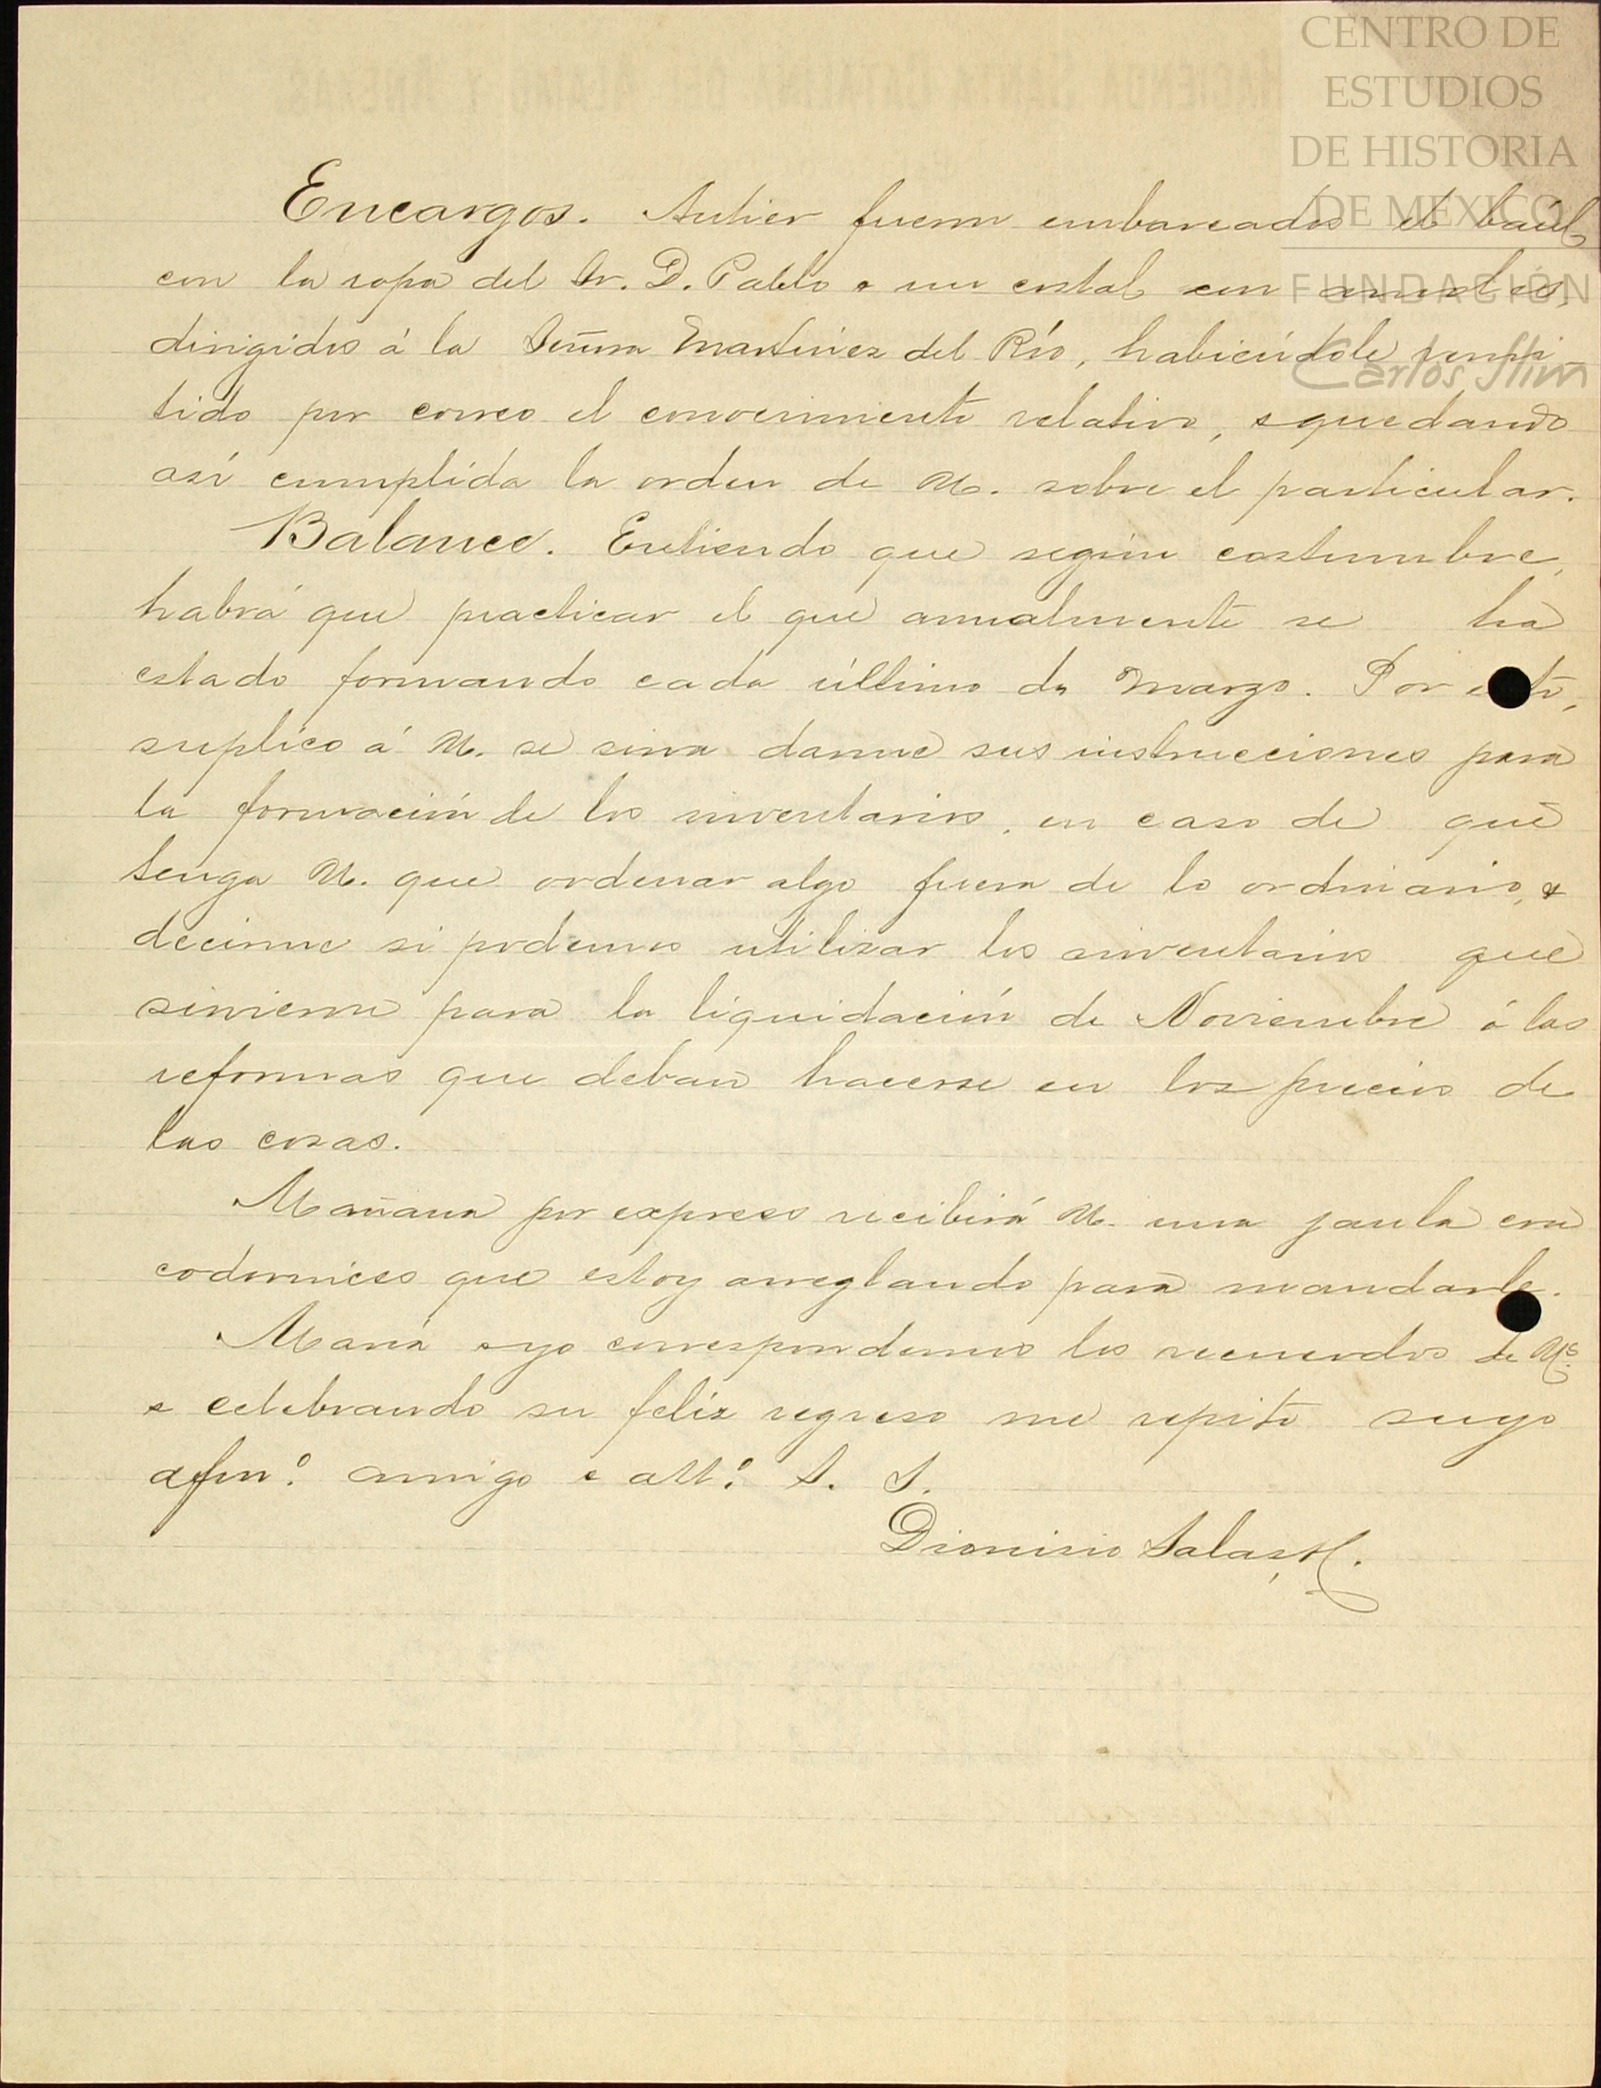 CENTRO DE
ESTUDIOS
DE HISTORIA
DE MÉXICO
FUNDACIÓN
Carlos Slim
Encargos. Antier fueron embarcados el baúl
con la ropa del Sr. D. Pablo e un costal con
dirigidos á la Señora Martínez del Río, habiéndole remi
tido por correo el conocimiento relativo, e quedando
así cumplida la orden de U. sobre el particular.
Balance. Entiendo que según costumbre,
habrá que practicar el que anualmente se ha
estado formando cada último de Marzo. Por esto,
suplico á U. se sirva darme sus instrucciones para
la formación de los inventarios, en caso de que
tenga U. que ordenar algo fuera de lo ordinario, e
decirme si podemos utilizar los inventarios que
sirvieron para la liquidación de Noviembre ó las
reformas que deban hacerse en los precios de
las cosas.
Mañana por expreso recibirá U. una jaula con
codornices que estoy arreglando para mandarle.
María e yo correspondemos los recuerdos de Us.
e celebrando su feliz regreso me repito suyo
afmo. amigo e atto. S. S.
Dionisio Salas, H.